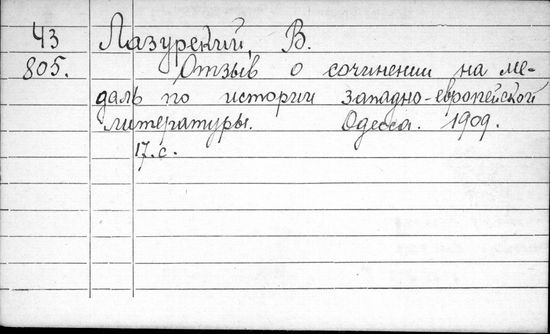 43 Лазурский, В.
805. Отзыв о сочинении на ме-
даль по истории западно-европейской
литературы. Одесса. 1909.
17.с.